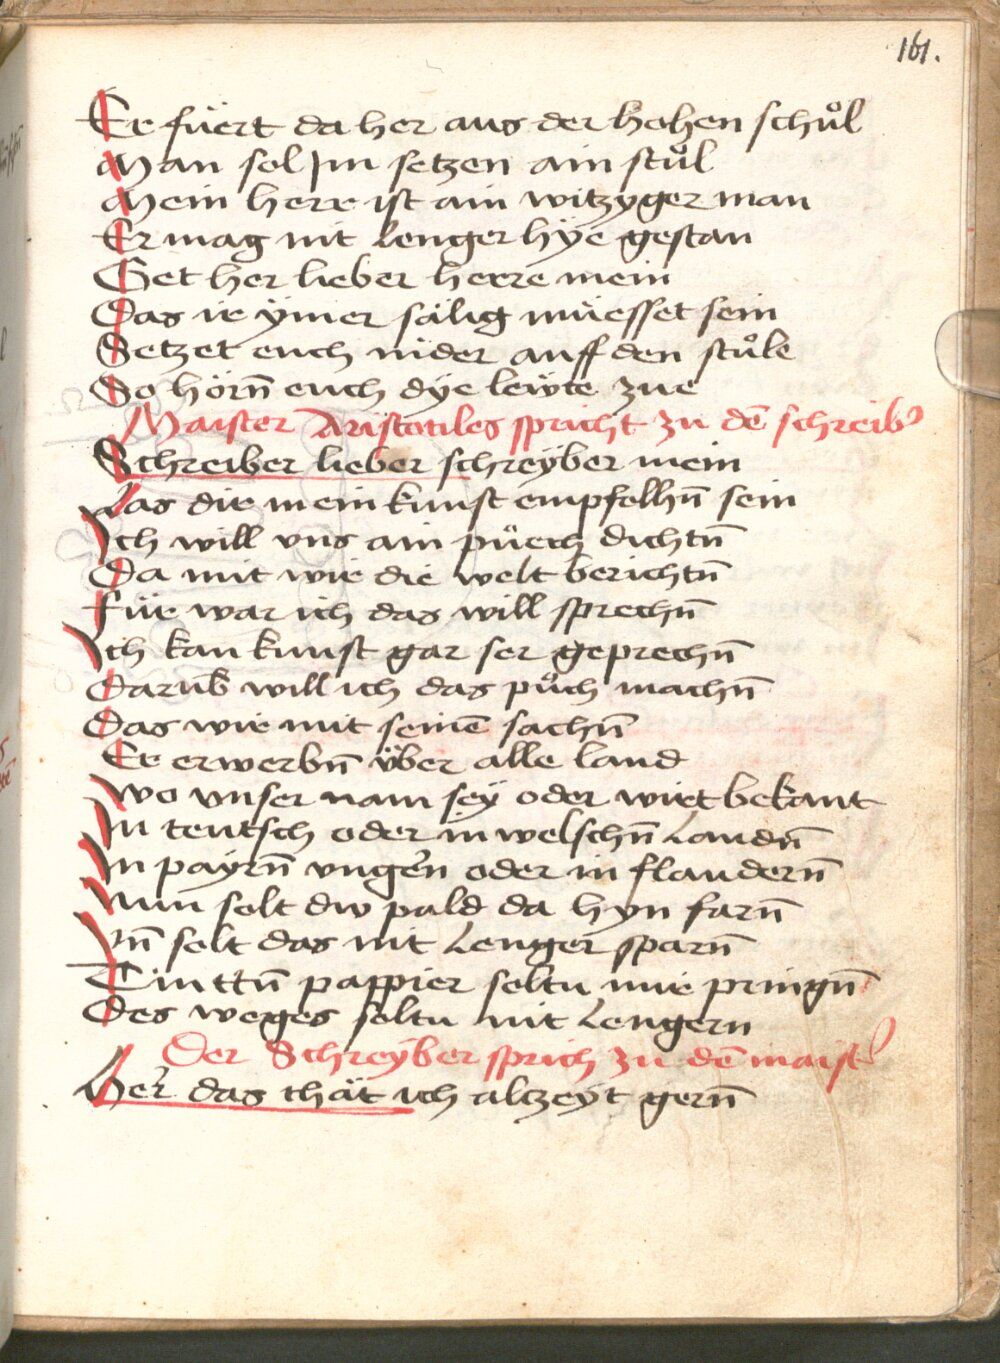 161.
Er füert da her aus der hohen schůl
Man sol Im setzen ain stůl
Mein herr ist ain witzyger man
Er mag nit lenger hÿe gestan
Get her lieber herre mein
Das ir ÿmer sälig müesset sein
Setzet euch nider auff den stůle
So hörn̄ euch dÿe lewte zue
Maister Aristotiles spricht zu dē schreibꝰ
Schreiber lieber schreÿber mein
Las dir mein kunst empfelhn̄ sein
Ich will vns ain püech dichtn̄
Da mit wir die welt berichtn̄
Für war ich das will sprechn̄
Ich kan kunst gar ser geprechn̄
Darūb will ich das půch machn̄
Das wir mit seinē sachn̄
Er erwerbn̄ über alle land
Wo vnser nam seÿ oder wirt bekant
In teutsch oder in welschn̄ Landn̄
In payrn̄ vngern̄ oder in flandern̄
Nun solt dw pald da hyn farn̄
Vn̄ solt das nit lenger sparn̄
Tinttn̄ pappier soltu mir pringn̄
Des weges soltu nit lengern
Der Schreÿber sprich zu dē maistꝰ
Her das thät ich alzeyt gern̄